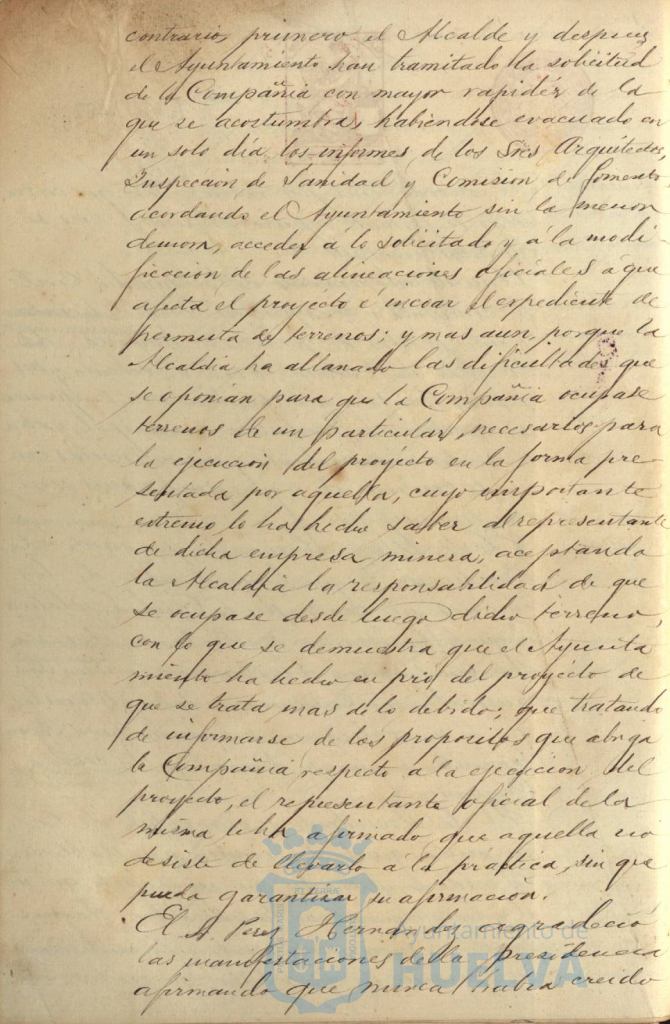 contrario, primero el Alcalde y despues
el Ayuntamiento han tramitado la solicitud
de la Compañia con mayor rapidéz de la
que se acostumbra, habiendose evacuado en
un solo dia los informes de los Sres Arquitectos,
Inspeccion de Sanidad y Comision de fomento
acordando el Ayuntamiento sin la menor
demora, acceder á lo solicitado y á la modi-
ficacion de las alineaciones oficiales á que
afecta el proyécto é incoar el expediente de
permuta de terrenos; y mas aun, porque la
Alcaldia ha allanado las dificultades que
se oponian para que la Compañia ocupase
terrenos de un particular, necesarios para
la ejecucion del proyécto en la forma pre-
sentada por aquella, cuyo importante
extremo lo ha hecho saber al representante
de dicha empresa minera, aceptando
la Alcaldia la responsabilidad de que
se ocupase desde luego dicho terreno,
con lo que se demuestra que el Ayunta
miento ha hecho en pró del proyécto de
que se trata mas de lo debido; que tratando
de informarse de los propositos que abriga
la Compañia respecto á la ejecucion del
proyécto, el representante oficial de la
misma le ha afirmado que aquella no
desiste de llevarlo á la práctica, sin que
pueda garantizar su afirmacion.
El Sr. Perez Hernandez agradeció
las manifestaciones de la presidencia
afirmando que nunca habia creido
Ayuntamiento de
HUELVA